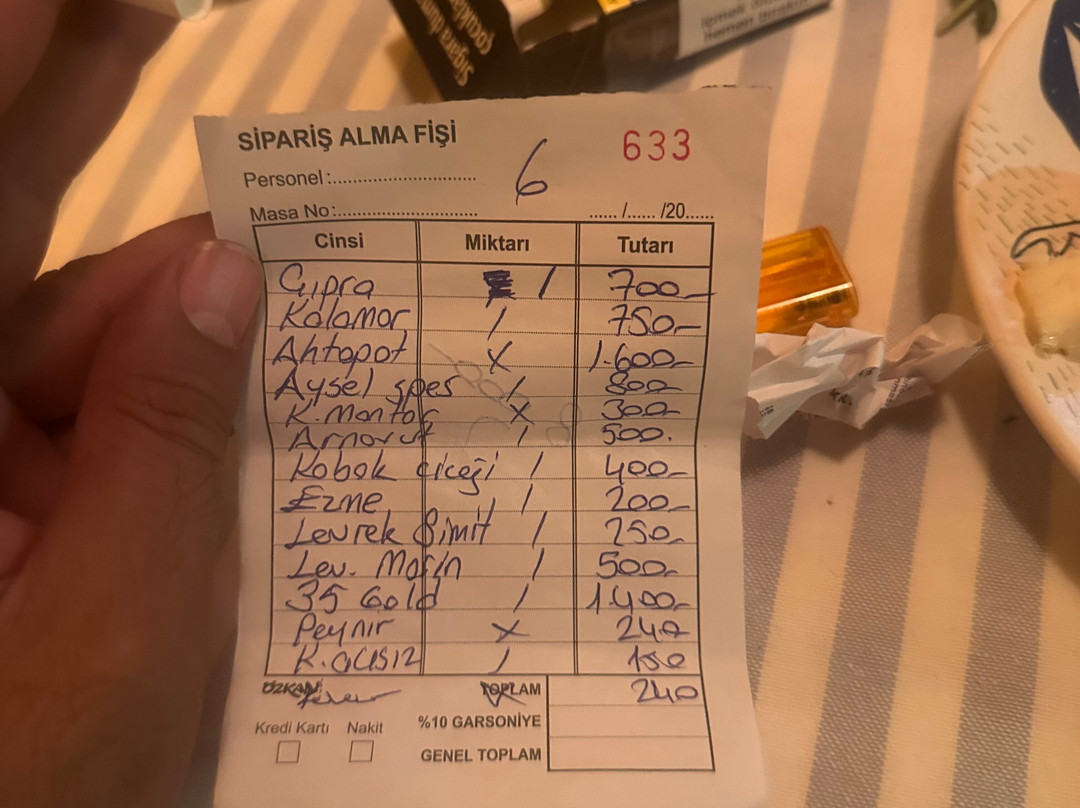 Sigara dum
çocukla
içmek
hemen bırakın
SİPARİŞ ALMA FİŞİ
633
Personel:............................ 6
Masa No:........................... ....../...... /20......
Cinsi Miktarı Tutarı
Çıpra / 700-
Kalamar / 750-
Ahtapot X 1.600-
Aysel spes / 800-
K. Mantar X 300-
Arnavut / 500.
Kabak çiçeği / 400-
Ezme / 200-
Levrek Simit / 250-
Lev. Marin / 500-
35 Gold / 1400-
Peynir X 240
K. acısız / 150
ÖZKAN TOPLAM 240
Kredi Kartı Nakit %10 GARSONİYE
GENEL TOPLAM